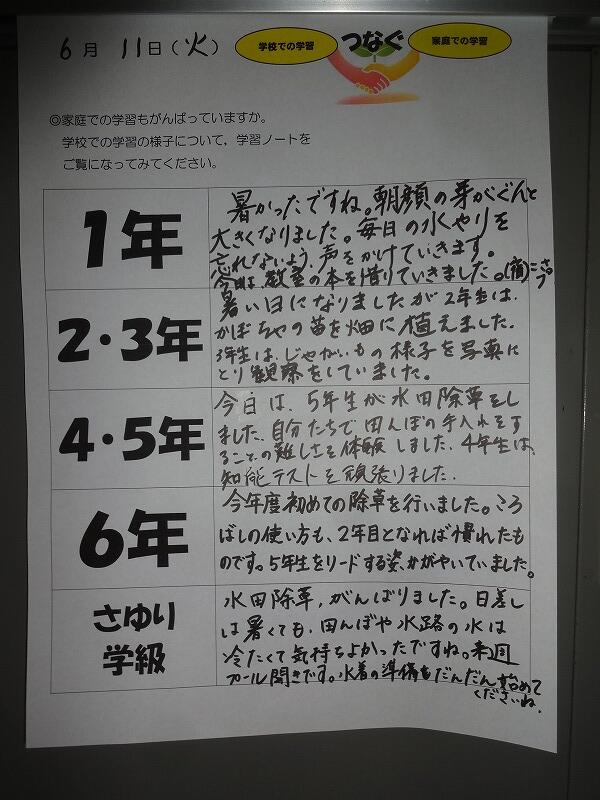 6月 11日(火)
学校での学習
つなぐ
家庭での学習
◎家庭での学習もがんばっていますか。
学校での学習の様子について，学習ノートを
ご覧になってみてください。
1年
暑かったですね。朝顔の芽がぐんと
大きくなりました。毎日の水やりを
忘れないよう、声をかけていきます。
今日は、教室の本を借りていきました。(宿)
2・3年
暑い日になりましたが2年生は、
かぼちゃの苗を畑に植えました。
3年生は、じゃがいもの様子を写真に
とり観察をしていました。
4・5年
今日は、5年生が水田除草をし
ました。自分たちで田んぼの手入れをす
ることの難しさを体験しました。4年生は、
知能テストを頑張りました。
6年
今年度初めての除草を行いました。ころ
ばしの使い方も、2年目となれば慣れたも
のです。5年生をリードする姿、かがやいていました。
さゆり
学級
水田除草，がんばりました。日差し
は暑くても、田んぼや水路の水は
冷たくて気持ちよかったですね。来週
プール開きです。水着の準備をだんだん始めて
くださいね。